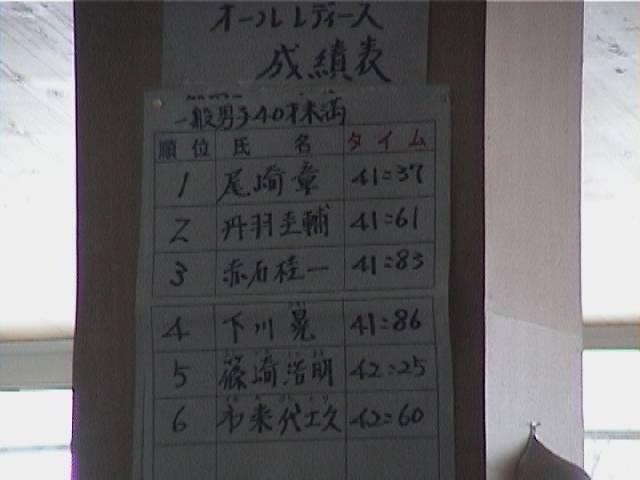 オールレディース
成績表
一般男子40才未満
順位 氏名 タイム
1 尾崎章 41=37
2 丹羽圭輔 41=61
3 赤石桂一 41=83
4 下川晃 41=86
5 篠崎浩明 42=25
6 市来代士久 42=60